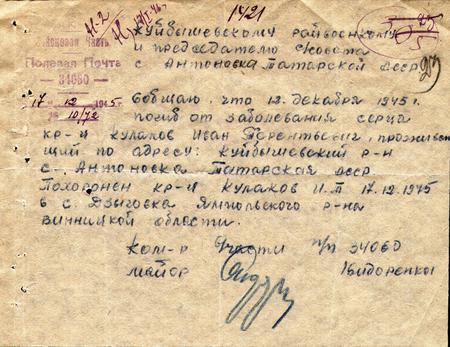 14/21
Н-2
Куйбышевскому райвоенкому
и председателю с/совета
с Антоновка Татарской АССР
Войсковая Часть
Полевая Почта
— 34060 —
17 " 12 1945 г.
№ 10/72
Сообщаю, что 12 декабря 1945 г.
погиб от заболевания серца
кр-ц Кулаков Иван Терентьевич, прожива
щий по адресу: Куйбышевский р-н
с. Антоновка Татарская АССР
Похоронен кр-ц Кулаков И.Т 17.12.1945
в с. Дзыговка Ямпольского р-на
Винницкой области.
Ком-р Части п/п 34060
майор